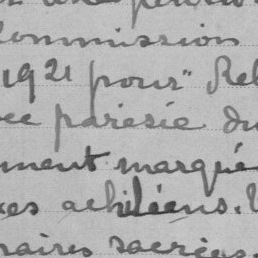 ommission
1921 pour" Rel
ee parésie du
ment marqué
es achiléens.
raires sacrées.